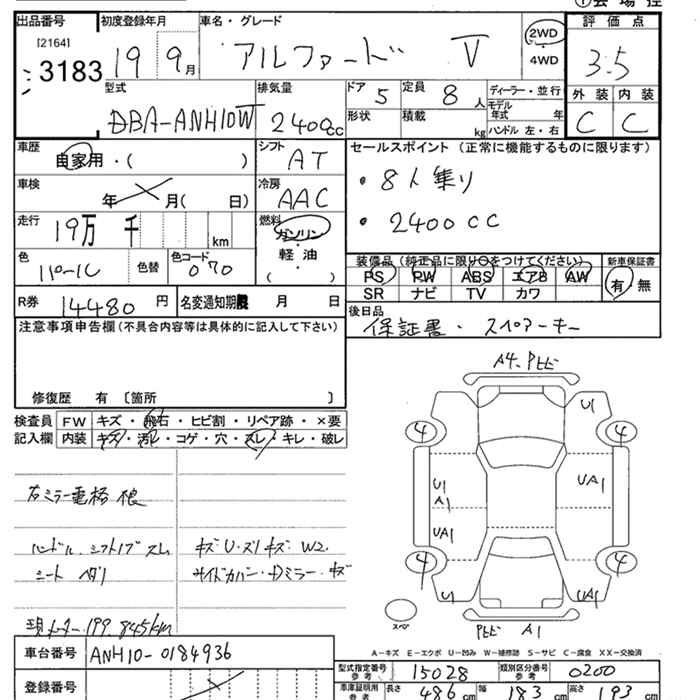 出品番号 初度登録年月 車名・グレード 2WD 評価点
[2164]
3183 19 9月 アルファード V ・4WD 3.5
型式 排気量 ドア 定員 ディーラー・並行 外装 内装
DBA-ANH10W 2400cc 5 8人 モデル年式 年 C C
形状 積載 kg ハンドル 左・右
車歴 シフト セールスポイント (正常に機能するものに限ります)
自家用・( ) AT ・8人乗り
車検 冷房
年 月( 日) AAC ・2400CC
走行 燃料
19万 千 km ガソリン・軽油・( )
色 色替 色コード 装備品 (純正品に限り○をつけてください) 新車保証書
パール 070 PS PW ABS エアB AW 有・無
SR ナビ TV カワ
R券 14480円 名変通知期限 月 日 後日品
保証書・スペアーキー
注意事項申告欄 (不具合内容等は具体的に記入して下さい)
修復歴 有 〔箇所 〕
検査員 FW キズ・飛石・ヒビ割・リペア跡・×要
記入欄 内装 キズ・汚レ・コゲ・穴・スレ・キレ・破レ
右ミラー電格
ハンドル、シフトノブスレ
シート ヘタリ
キズ・U・ズリキズ・W2
サイドカバー・Dミラー・キズ
現メーター199,845km
A4・Pヒビ
U1
4 4
U1
A1
UA1
UA1
4 4
U UA1
スペア
Pヒビ A1
A-キズ E-エクボ U-凹み W-補修跡 S-サビ C-腐食 XX-交換済
車台番号 ANH10-0184936
型式指定番号 参考 15028 類別区分番号 参考 0200
登録番号
車庫証明用 参考 長さ 486cm 幅 183cm 高さ 193cm